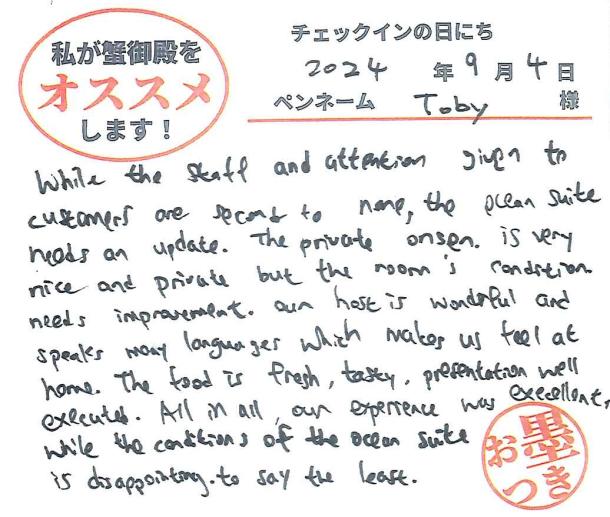 私が蟹御殿を
オススメ
します！
チェックインの日にち
2024 年 9 月 4 日
ペンネーム Toby 様
While the staff and attention given to
customers are second to none, the ocean suite
needs an update. The private onsen. is very
nice and private but the room's condition
needs improvement. our host is wonderful and
speaks many languages which makes us feel at
home. The food is fresh, tasty, presentation well
executed. All in all, our experience was execellent,
while the conditions of the ocean suite
is disappointing. to say the least.
お墨つき